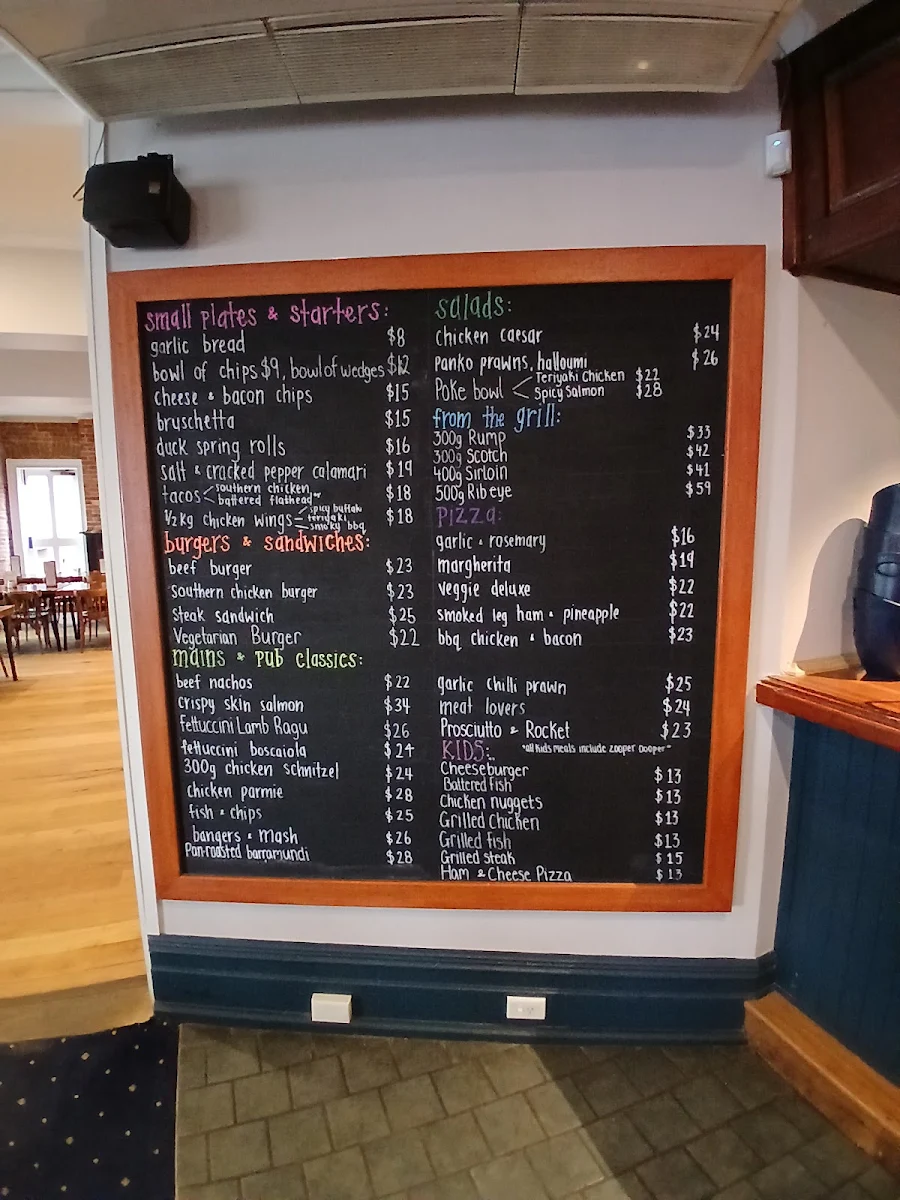 small plates & starters:
garlic bread $8
bowl of chips $9, bowl of wedges $12
cheese & bacon chips $15
bruschetta $15
duck spring rolls $16
salt & cracked pepper calamari $19
tacos < southern chicken $18
battered flathead
1/2 kg chicken wings spicy buffalo $18
teriyaki
smoky bbq
burgers & sandwiches:
beef burger $23
southern chicken burger $23
steak sandwich $25
Vegetarian Burger $22
mains & pub classics:
beef nachos $22
crispy skin salmon $34
fettuccini Lamb Ragu $26
fettuccini boscaiola $24
300g chicken schnitzel $24
chicken parmie $28
fish & chips $25
bangers & mash $26
Pan-roasted barramundi $28
salads:
chicken caesar $24
panko prawns, halloumi $26
Poke bowl < Teriyaki Chicken $22
Spicy Salmon $28
from the grill:
300g Rump $33
300g Scotch $42
400g Sirloin $41
500g Rib eye $59
Pizza:
garlic & rosemary $16
margherita $19
veggie deluxe $22
smoked leg ham & pineapple $22
bbq chicken & bacon $23
garlic chilli prawn $25
meat lovers $24
Prosciutto & Rocket $23
KIDS: *all kids meals include zooper dooper*
Cheeseburger $13
Battered Fish
Chicken nuggets $13
Grilled Chicken $13
Grilled fish $13
Grilled steak $15
Ham & Cheese Pizza $13